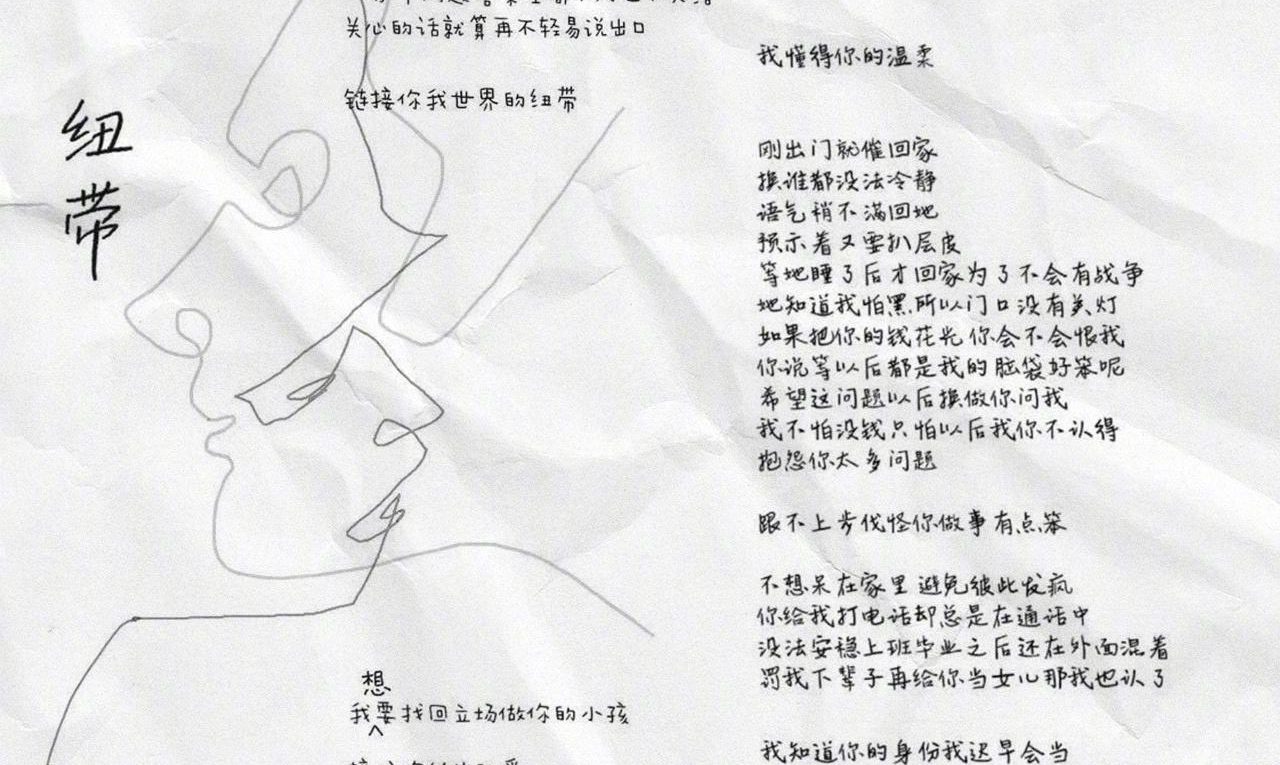 纽带
关心的话就算再不轻易说出口
链接你我世界的纽带
想
我要找回立场做你的小孩
我懂得你的温柔
刚出门就催回家
换谁都没法冷静
语气稍不满回地
预示着又要扒层皮
等地睡了后才回家为了不会有战争
地知道我怕黑所以门口没有关灯
如果把你的钱花光你会不会恨我
你说等以后都是我的脑袋好笨呢
希望这问题以后换做你问我
我不怕没钱只怕以后我你不认得
抱怨你太多问题
跟不上步伐怪你做事有点笨
不想呆在家里避免彼此发疯
你给我打电话却总是在通话中
没法安稳上班毕业之后还在外面混着
罚我下辈子再给你当女儿那我也认了
我知道你的身份我迟早会当